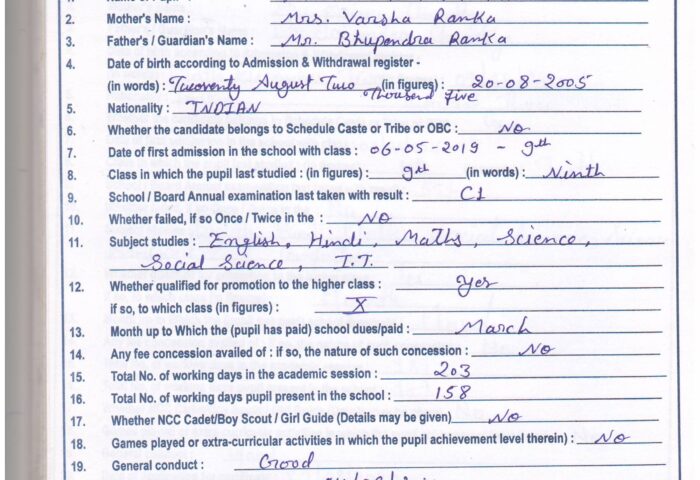 2. Mother's Name : Mrs. Varsha Ranka
3. Father's / Guardian's Name : Mr. Bhupendra Ranka
4. Date of birth according to Admission & Withdrawal register -
(in words) : Twoventy August Two Thousand five (in figures) : 20-08-2005
5. Nationality : INDIAN
6. Whether the candidate belongs to Schedule Caste or Tribe or OBC : No
7. Date of first admission in the school with class : 06-05-2019 - 9th
8. Class in which the pupil last studied : (in figures) : 9th (in words) : Ninth
9. School / Board Annual examination last taken with result : C1
10. Whether failed, if so Once / Twice in the : NO
11. Subject studies : English, Hindi, Maths, Science,
Social Science, I.T.
12. Whether qualified for promotion to the higher class : Yes
if so, to which class (in figures) : X
13. Month up to Which the (pupil has paid) school dues/paid : March
14. Any fee concession availed of : if so, the nature of such concession : No
15. Total No. of working days in the academic session : 203
16. Total No. of working days pupil present in the school : 158
17. Whether NCC Cadet/Boy Scout / Girl Guide (Details may be given) No
18. Games played or extra-curricular activities in which the pupil achievement level therein) : No
19. General conduct : Good